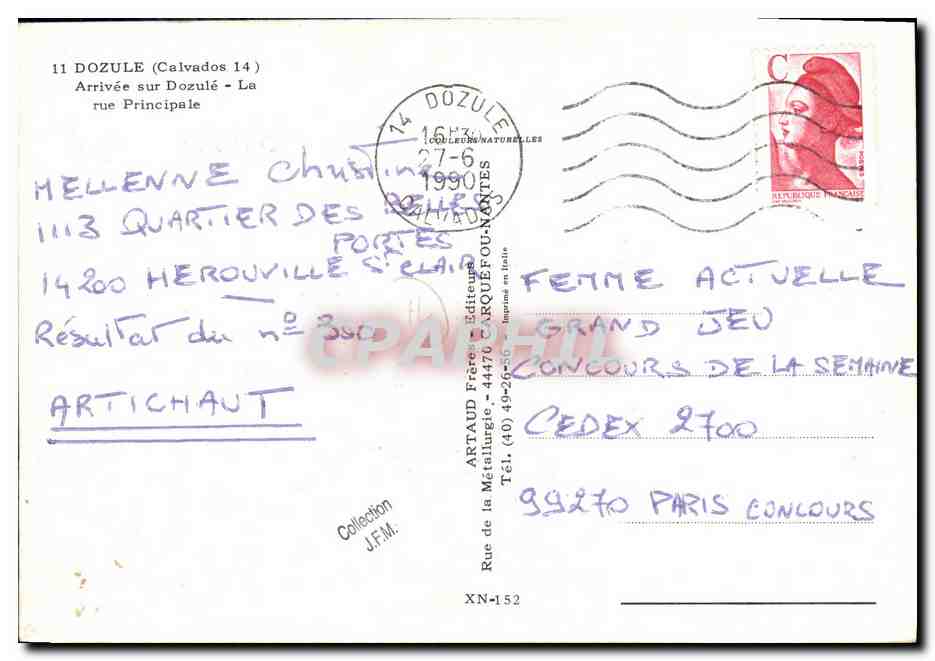 11 DOZULE (Calvados 14)
Arrivée sur Dozulé - La
rue Principale
MELLENNE Christine
1113 QUARTIER DES BELLES
PORTES
14200 HEROUVILLE St CLAIR
Résultat du nº 300
ARTICHAUT
Collection
J.F.M.
14 DOZULE
16H30
27-6
1990
CALVADOS
COULEURS NATURELLES
ARTAUD Frères - Editeurs
Rue de la Métallurgie - 44470 CARQUEFOU-NANTES
Tél. (40) 49-26-56 - Imprimé en Italie
XN-152
CPAPHIL
C
REPUBLIQUE FRANÇAISE
FEMME ACTUELLE
GRAND JEU
CONCOURS DE LA SEMAINE
CEDEX 2700
99270 PARIS CONCOURS